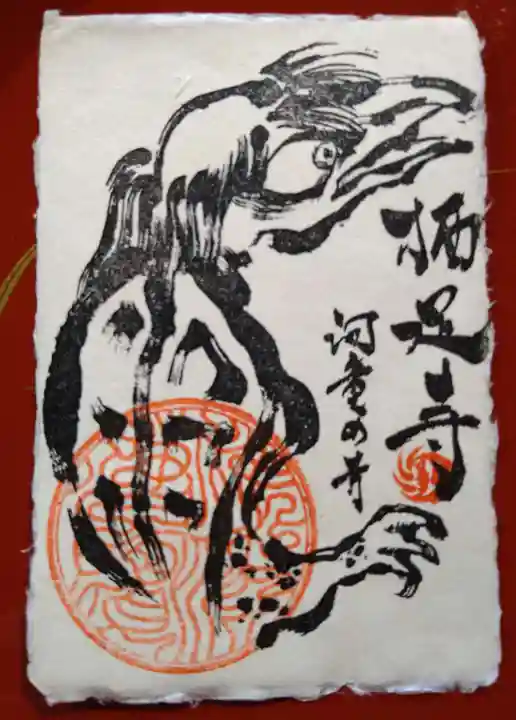 栖足寺
河童の井